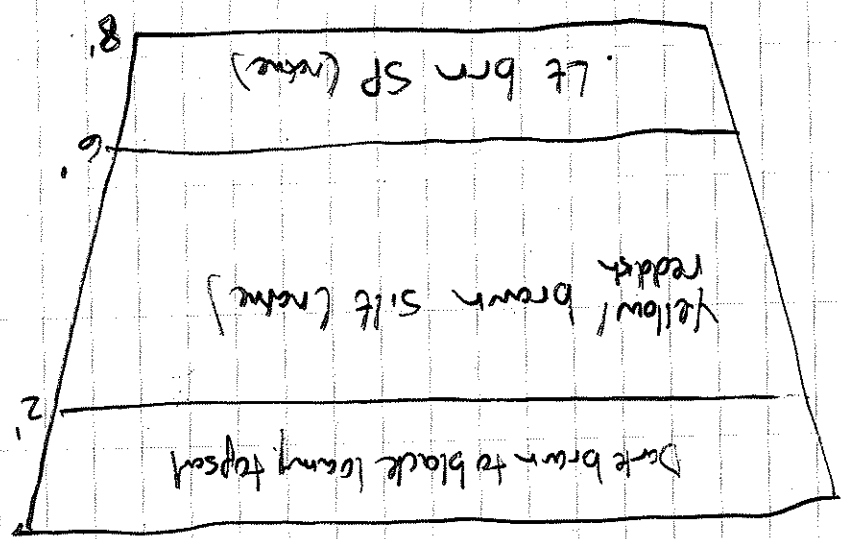 Dark brown to black loamy topsoil
2'
Yellow/ brown silt (native)
reddish
6'
Lt brn SP (native)
8'